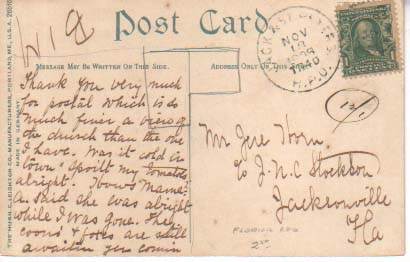 Post Card
MESSAGE MAY BE WRITTEN ON THIS SIDE.
ADDRESS ONLY ON THIS
THE HUGH C. LEIGHTON CO., MANUFACTURERS, PORTLAND, ME., U.S.A.
MADE IN GERMANY.
NOV
R.P.O.
Thank you very much
for postal which is so
much finer a view of
the church than the one
I have. Was it cold in
town? Spoilt my tomatoes
alright.
a. Said she was alright
while I was gone. The
coons & foxes are still
awaitin yer comin
Mr Jere Horn
c/o J.N.C. Stockton
Jacksonville
Fla